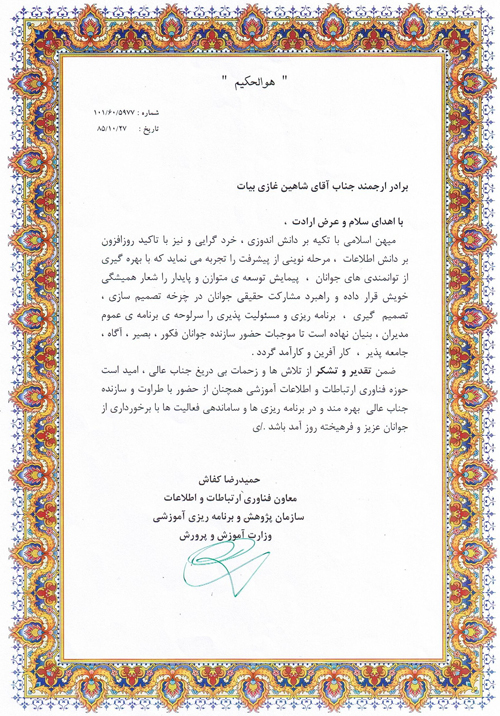 " هوالحکیم "
شماره : ۱۰۱/۶۰/۵۹۷۷
تاریخ : ۸۵/۱۰/۲۷
برادر ارجمند جناب آقای شاهین غازی بیات
با اهدای سلام و عرض ارادت ،
میهن اسلامی با تکیه بر دانش اندوزی ، خرد گرایی و نیز با تاکید روزافزون
بر دانش اطلاعات ، مرحله نوینی از پیشرفت را تجربه می نماید که با بهره گیری
از توانمندی های جوانان ، پیمایش توسعه ی متوازن و پایدار را شعار همیشگی
خویش قرار داده و راهبرد مشارکت حقیقی جوانان در چرخه تصمیم سازی ،
تصمیم گیری ، برنامه ریزی و مسئولیت پذیری را سرلوحه ی برنامه ی عموم
مدیران ، بنیان نهاده است تا موجبات حضور سازنده جوانان فکور ، بصیر ، آگاه ،
جامعه پذیر ، کار آفرین و کارآمد گردد .
ضمن تقدیر و تشکر از تلاش ها و زحمات بی دریغ جناب عالی ، امید است
حوزه فناوری ارتباطات و اطلاعات آموزشی همچنان از حضور با طراوت و سازنده
جناب عالی بهره مند و در برنامه ریزی ها و ساماندهی فعالیت ها با برخورداری از
جوانان عزیز و فرهیخته روز آمد باشد ./ی
حمیدرضا کفاش
معاون فناوری ارتباطات و اطلاعات
سازمان پژوهش و برنامه ریزی آموزشی
وزارت آموزش و پرورش